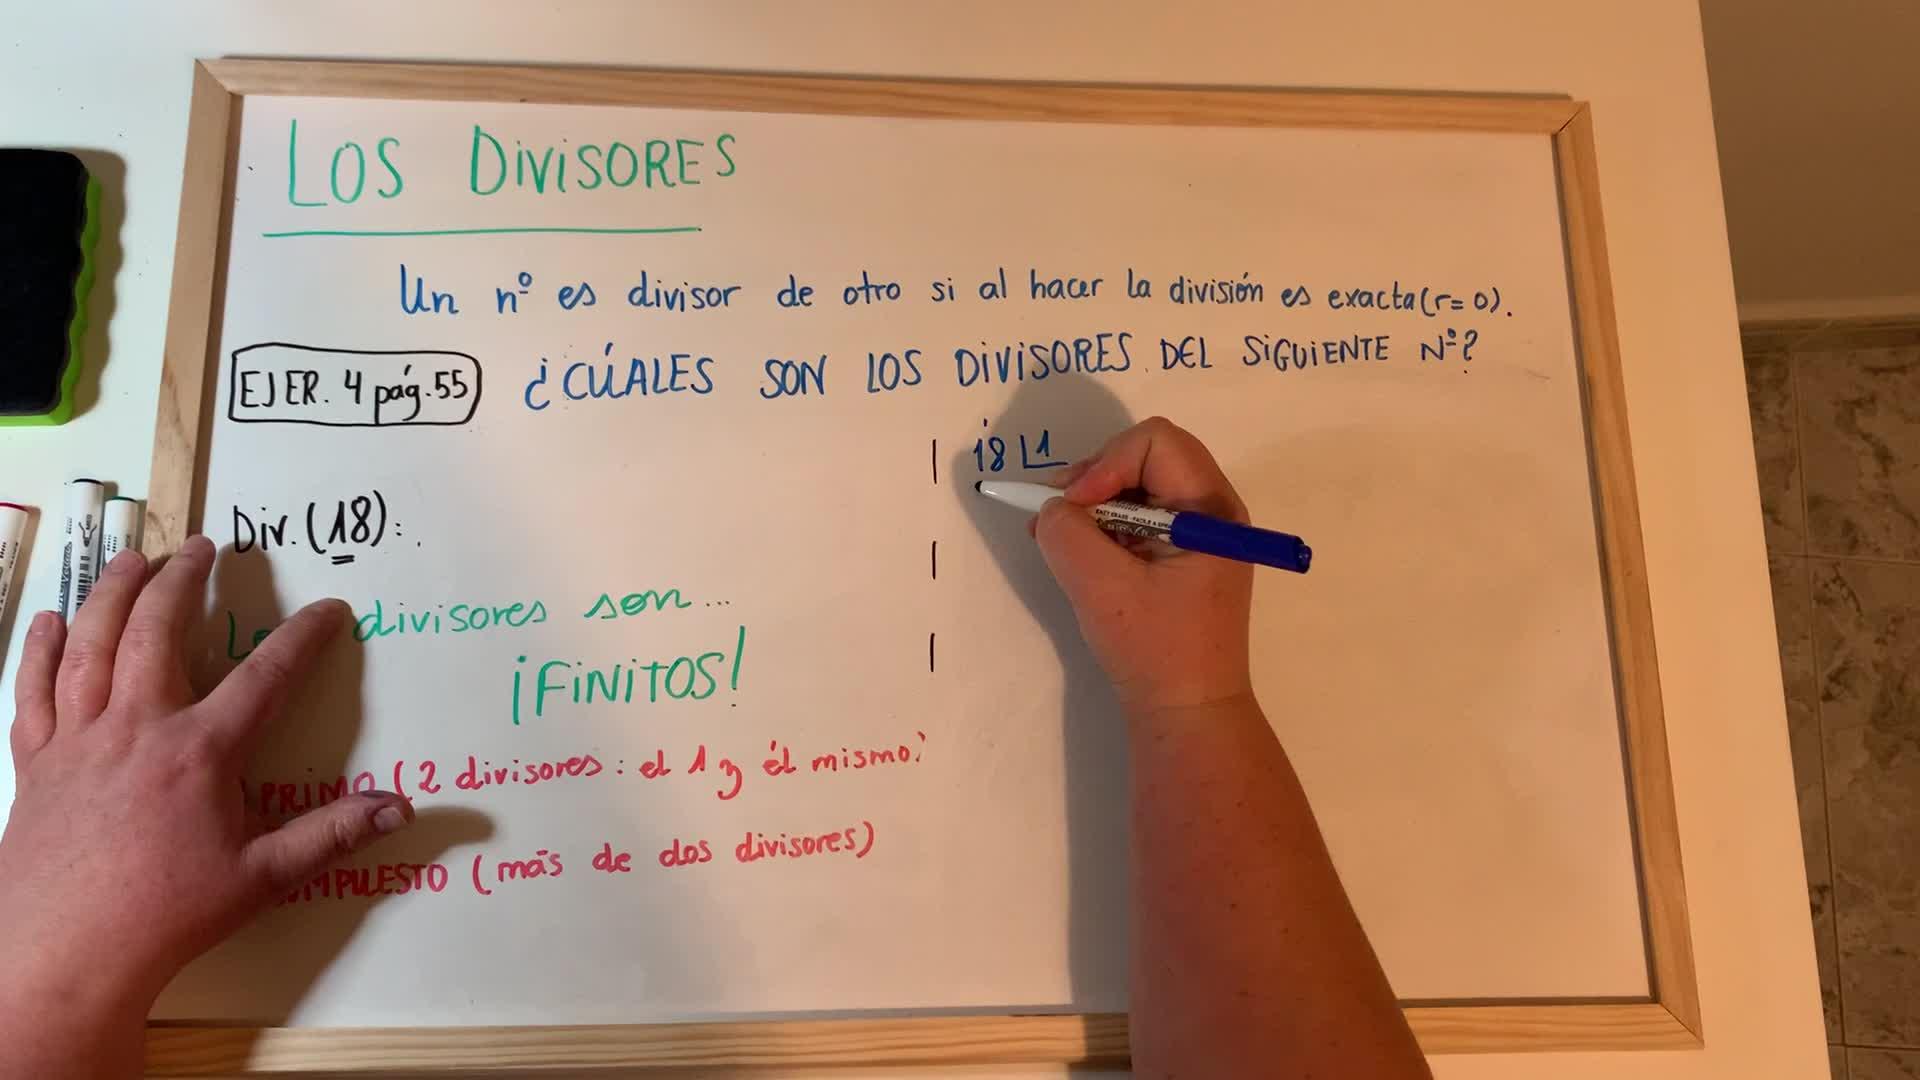 LOS DIVISORES
Un nº es divisor de otro si al hacer la división es exacta (r=0).
EJER. 4 pág. 55
¿CÚALES SON LOS DIVISORES DEL SIGUIENTE Nº?
18 1
Div. (18):
divisores son...
¡FINITOS!
PRIMO (2 divisores: el 1 y él mismo)
(más de dos divisores)